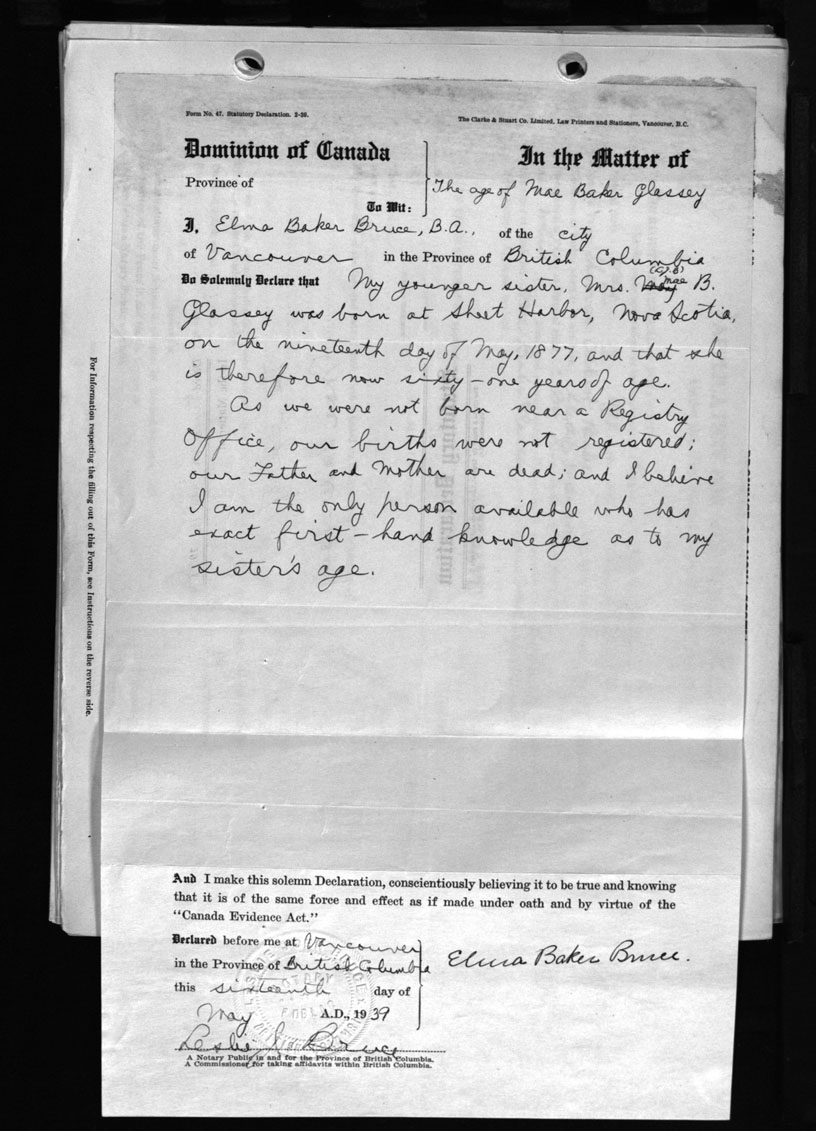 Form No. 47. Statutory Declaration. 2-20.
The Clarke & Stuart Co. Limited, Law Printers and Stationers, Vancouver, B.C.
Dominion of Canada
In the Matter of
Province of
The age of Mae Baker Glassey
To Wit:
I, Elma Baker Bruce, B.A., of the city
of Vancouver in the Province of British Columbia
Do Solemnly Declare that My younger sister, Mrs. Mae B.
Glassey was born at Sheet Harbor, Nova Scotia,
on the nineteenth day of May, 1877, and that she
is therefore now sixty-one years of age.
As we were not born near a Registry
Office, our births were not registered;
our Father and Mother are dead; and I believe
I am the only person available who has
exact first-hand knowledge as to my
sister's age.
For Information respecting the filling out of this Form, see Instructions on the reverse side.
And I make this solemn Declaration, conscientiously believing it to be true and knowing
that it is of the same force and effect as if made under oath and by virtue of the
"Canada Evidence Act."
Declared before me at Vancouver
in the Province of British Columbia
this sixteenth day of
May A.D., 1939
Elma Baker Bruce.
Leslie
A Notary Public in and for the Province of British Columbia.
A Commissioner for taking affidavits within British Columbia.